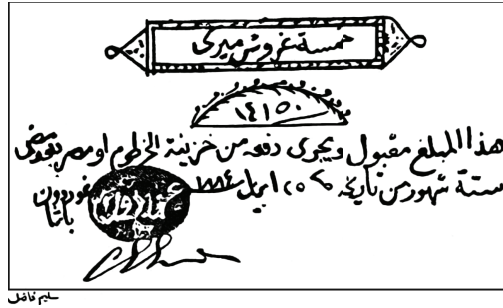 خمسة غروش ميرى
١٤١٥٠
هذا المبلغ مقبول ويجرى دفعه من خزينة الخرطوم او مصر بعد مضى
ستة شهور من تاريخه ٢٥ ابريل ١٨٨٤
غوردون
باشا
سليم فاضل